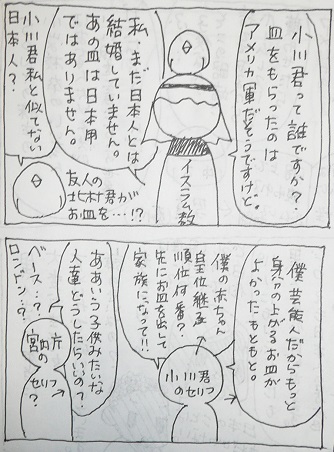 小川君って誰ですか？
皿をもらったのは
アメリカ軍だそうですけど。
イスラム教
私、まだ日本人とは
結婚していません。
あの皿は日本用
ではありません。
友人の
北村君が
お皿を…!?
小川君私と似てない
日本人？
僕芸能人だからもっと
身分の上がるお皿が
よかったもともと。
小川君
のセリフ
僕の赤ちゃん
皇位継承
順位何番？
先にお皿を出して
家族になって!!
ああいう子供みたいな
人達どうしたらいいの？
宮内庁
のセリフ
ベース…？
ロンドン…？